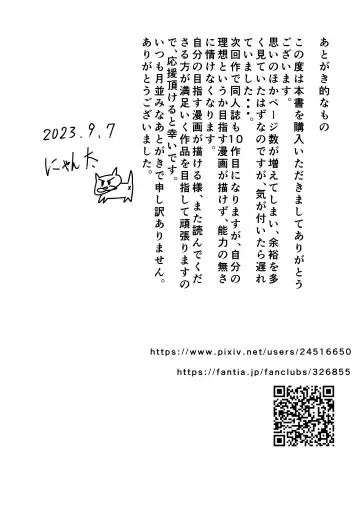 あとがき的なもの
この度は本書を購入いただきましてありがとう
ございます。
思いのほかページ数が増えてしまい、余裕を多
く見ていたはずなのですが、気が付いたら遅れ
ていました・・・。
次回作で同人誌も10作目になりますが、自分の
理想というか目指す漫画が描けず、能力の無さ
に情けなくなります。
自分の目指す漫画が描ける様、また読んでくだ
さる方が満足いく作品を目指して頑張りますの
で、応援頂けると幸いです。
いつも月並みなあとがきで申し訳ありません。
ありがとうございました。
2023.9.7
にゃん太
https://www.pixiv.net/users/24516650
https://fantia.jp/fanclubs/326855